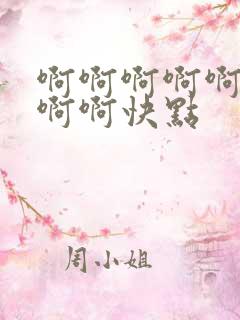 啊啊啊啊啊
啊啊快點
周小姐